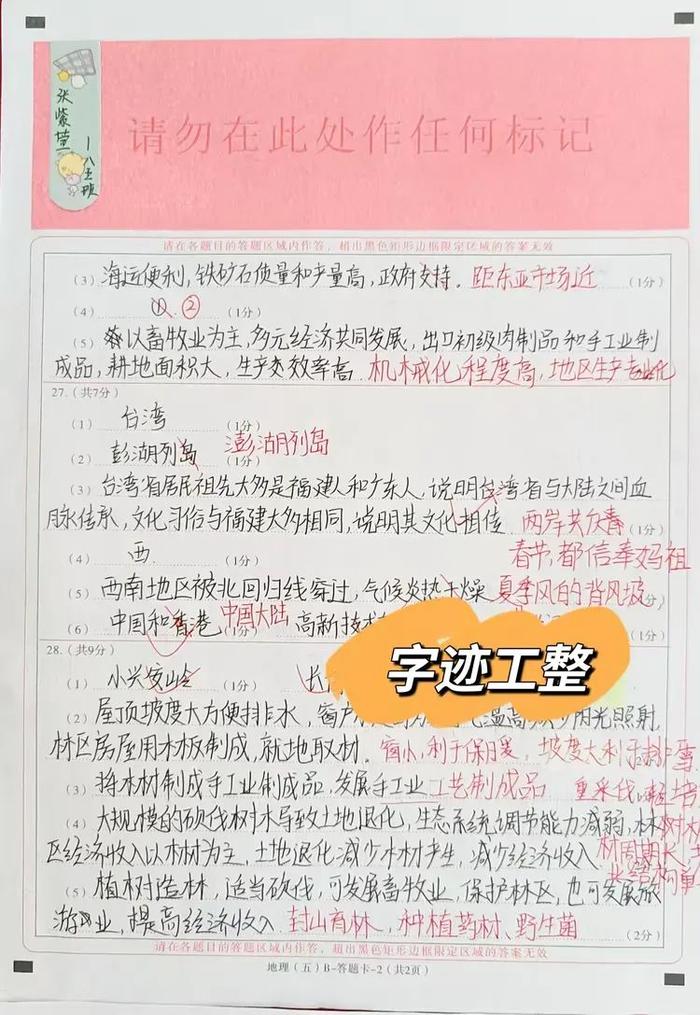 张紫萱
一八五班
请勿在此处作任何标记
请在各题目的答题区域内作答，超出黑色矩形边框限定区域的答案无效
(3) 海运便利，铁矿石质量和产量高，政府支持. 距东亚市场近 (1分)
(4) ① ② (1分)
(5) 以畜牧业为主，多元经济共同发展，出口初级肉制品和手工业制
成品，耕地面积大，生产效率高. 机械化程度高，地区生产专业化
27. (共7分)
(1) 台湾 (1分)
(2) 彭湖列岛 (1分) 澎湖列岛
(3) 台湾省居民祖先大多是福建人和广东人，说明台湾省与大陆之间血
脉传承，文化习俗与福建大多相同，说明其文化相传. 两岸共庆 (1分)
春节，都信奉妈祖
(4) 西. (1分)
(5) 西南地区被北回归线穿过，气候炎热干燥 夏季风的背风坡
(6) 中国和香港 中国大陆 高新技术 (1分)
字迹工整
28. (共9分)
(1) 小兴安岭 (1分) 长
(2) 屋顶坡度大方便排水，窗户 温高 光照射
林区房屋用木板制成，就地取材. 窗小，利于保暖，坡度大利于排雪
(3) 将木材制成手工业制成品，发展手工业 工艺制成品 重采伐，轻
(4) 大规模的砍伐树木导致土地退化，生态系统调节能力减弱，林 树木
区经济收入以木材为主，土地退化减少木材产生，减少经济收入 材周期长，
(5) 植树造林，适当砍伐，可发展畜牧业，保护林区，也可发展旅
游业，提高经济收入. 封山育林，种植药材、野生菌 (2分)
请在各题目的答题区域内作答，超出黑色矩形边框限定区域的答案无效
地理（五）B-答题卡-2（共2页）